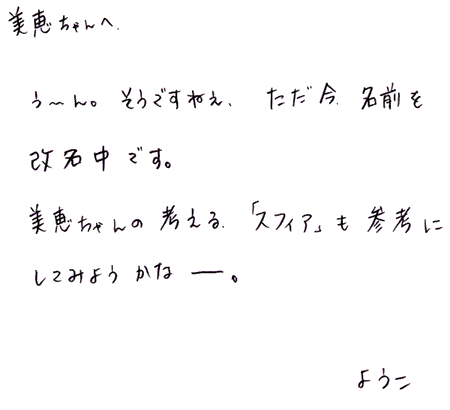 美恵ちゃんへ.
う〜ん。そうですねぇ、ただ今、名前を
改名中です。
美恵ちゃんの考える、「スフィア」も参考に
してみようかなー。
ようこ